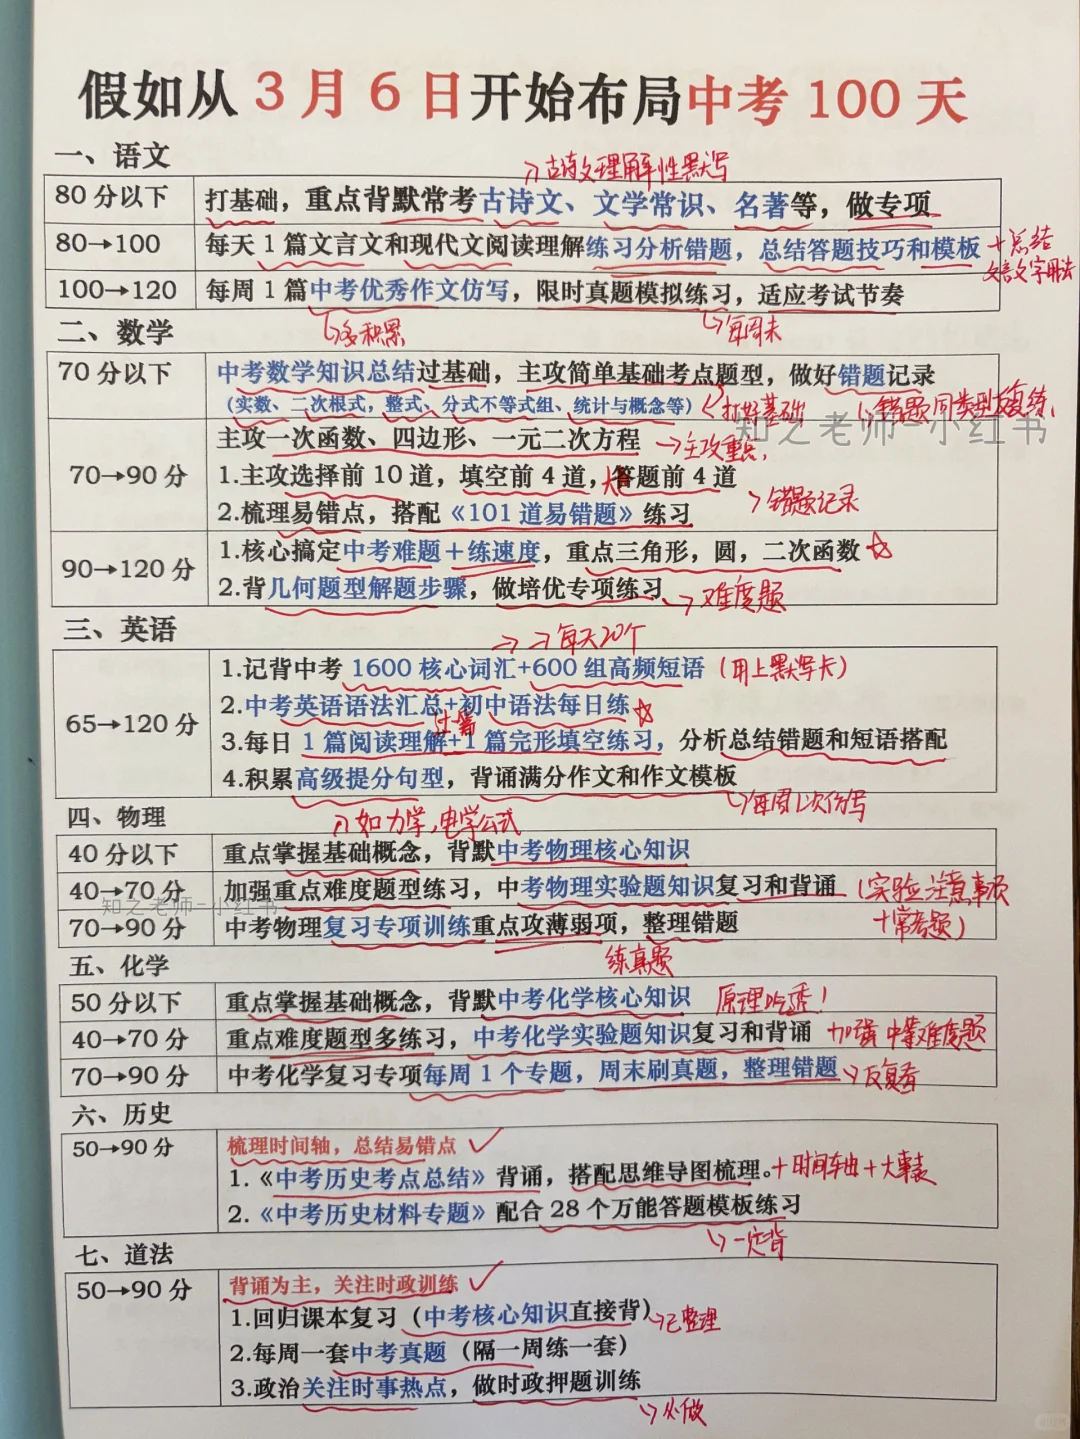 假如从3月6日开始布局中考100天
一、语文
→古诗文理解性默写
80分以下 打基础，重点背默常考古诗文、文学常识、名著等，做专项
80→100 每天1篇文言文和现代文阅读理解练习分析错题，总结答题技巧和模板 +总结
文言文字用法
100→120 每周1篇中考优秀作文仿写，限时真题模拟练习，适应考试节奏
二、数学 →多积累 →每周末
70分以下 中考数学知识总结过基础，主攻简单基础考点题型，做好错题记录
(实数、二次根式，整式、分式不等式组、统计与概念等) 打好基础 错题同类型复练
知之老师-小红书
主攻一次函数、四边形、一元二次方程 →主攻重点
70→90分 1.主攻选择前10道，填空前4道，大题前4道
2.梳理易错点，搭配《101道易错题》练习 →错题记录
90→120分 1.核心搞定中考难题+练速度，重点三角形，圆，二次函数☆
2.背几何题型解题步骤，做培优专项练习 →难度题
三、英语 →每天20个
1.记背中考1600核心词汇+600组高频短语 (用上默写卡)
65→120分 2.中考英语语法汇总+初中语法每日练☆
过篇
3.每日1篇阅读理解+1篇完形填空练习，分析总结错题和短语搭配
4.积累高级提分句型，背诵满分作文和作文模板
→每周1次仿写
四、物理 →如力学，电学公式
40分以下 重点掌握基础概念，背默中考物理核心知识
40→70分 加强重点难度题型练习，中考物理实验题知识复习和背诵 (实验注意事项
知之老师-小红书
70→90分 中考物理复习专项训练重点攻薄弱项，整理错题 +常考题)
五、化学 练真题
50分以下 重点掌握基础概念，背默中考化学核心知识 原理吃透!
40→70分 重点难度题型多练习，中考化学实验题知识复习和背诵 加强中等难度题
70→90分 中考化学复习专项每周1个专题，周末刷真题，整理错题 →反复看
六、历史
50→90分 梳理时间轴，总结易错点 ✓
1.《中考历史考点总结》背诵，搭配思维导图梳理。+时间轴+大事表
2.《中考历史材料专题》配合28个万能答题模板练习
→一定背
七、道法
50→90分 背诵为主，关注时政训练 ✓
1.回归课本复习（中考核心知识直接背） →已整理
2.每周一套中考真题（隔一周练一套）
3.政治关注时事热点，做时政押题训练
→必做